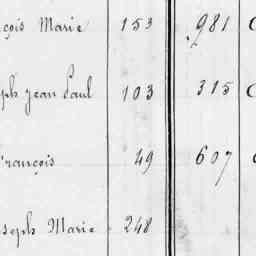 çois Marie 153 981
ph Jean Paul 103 315
François 49 607
seph Marie 248